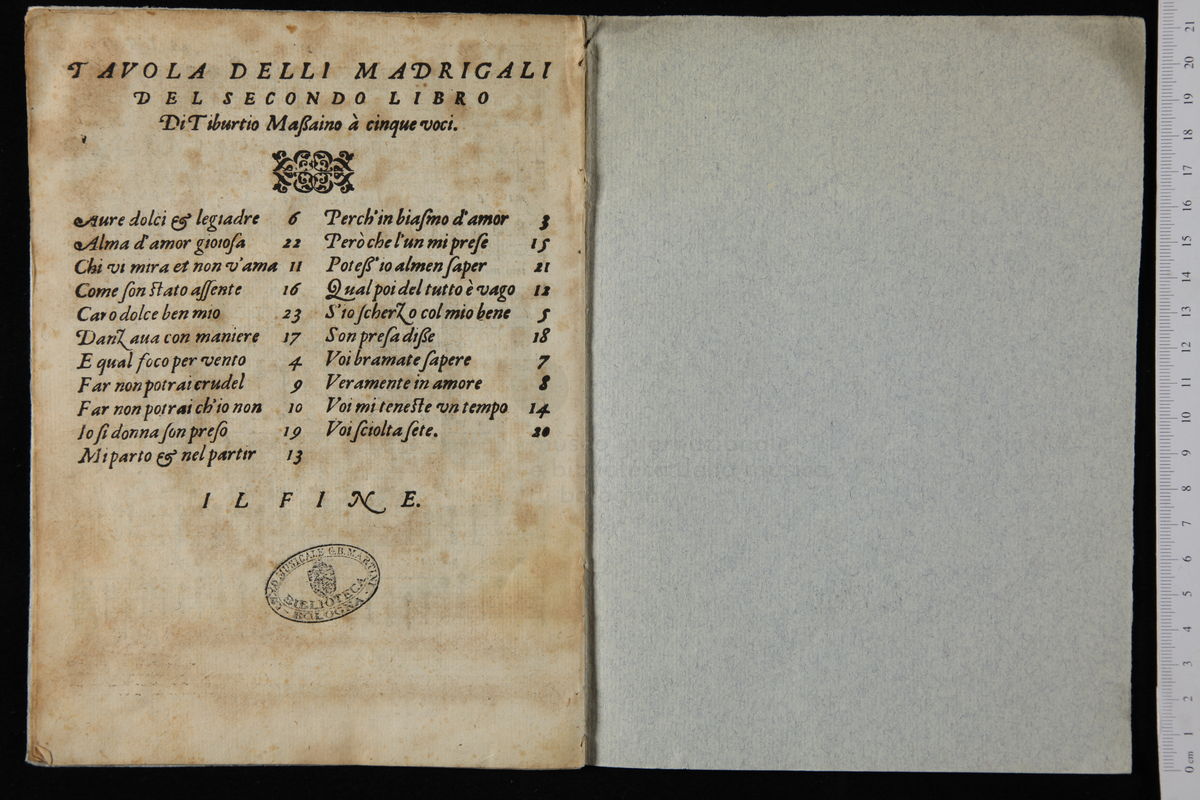 TAVOLA DELLI MADRIGALI
DEL SECONDO LIBRO
Di Tiburtio Maßaino à cinque voci.
Aure dolci & legiadre 6
Alma d'amor gioiosa 22
Chi vi mira et non v'ama 11
Come son stato assente 16
Caro dolce ben mio 23
DanZaua con maniere 17
E qual foco per vento 4
Far non potrai crudel 9
Far non potrai ch'io non 10
Io si donna son preso 19
Mi parto & nel partir 13
Perch'in biasmo d'amor 3
Però che l'un mi prese 15
Poteß'io almen saper 21
Qual poi del tutto è vago 12
S'io scherZo col mio bene 5
Son presa diße 18
Voi bramate sapere 7
Veramente in amore 8
Voi mi teneste vn tempo 14
Voi sciolta sete. 20
IL FINE.
MUSICALE G.B. MARTINI
BIBLIOTECA
BOLOGNA
0 cm 1 2 3 4 5 6 7 8 9 10 11 12 13 14 15 16 17 18 19 20 21